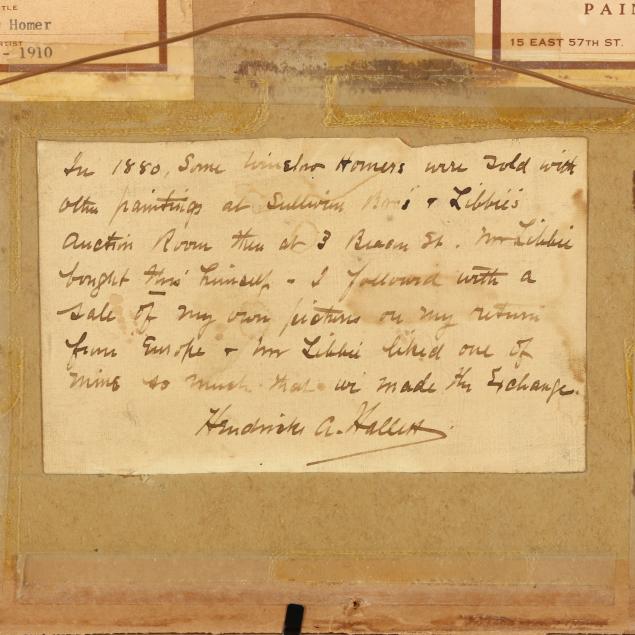 TLE
Homer
RTIST
- 1910
PAI
15 EAST 57TH ST.
In 1880, Some Winslow Homers were sold with
other paintings at Sullivan Bro's & Libbie's
Auction Room then at 3 Beacon St. Mr Libbie
bought this himself - I followed with a
sale of my own pictures on my return
from Europe & Mr Libbie liked one of
mine so much that we made the Exchange.
Hendricks A. Hallett